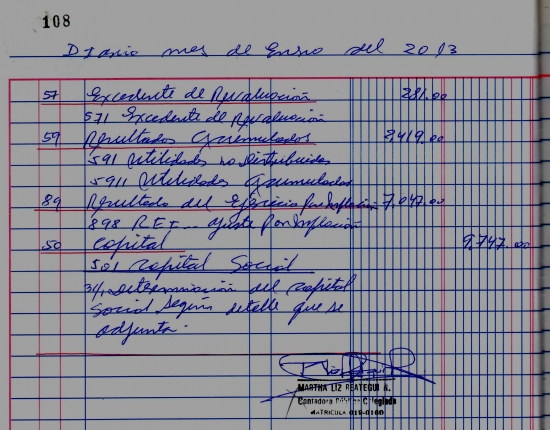 108
Diario mes de Enero del 2013
57 Excedente de Revaluación 281.00
571 Excedente de Revaluación
59 Resultados Acumulados 2,419.00
591 Utilidades no Distribuidas
5911 Utilidades Acumuladas
89 Resultado del Ejercicio por Inflación 7,047.00
898 R.E.I... ajuste por Inflación
50 Capital 9,747.00
501 Capital Social
31/1 Determinación del capital
Social según detalle que se
adjunta.
MARTHA LIZ REATEGUI A.
Contadora Público Colegiado
MATRICULA 019-0160